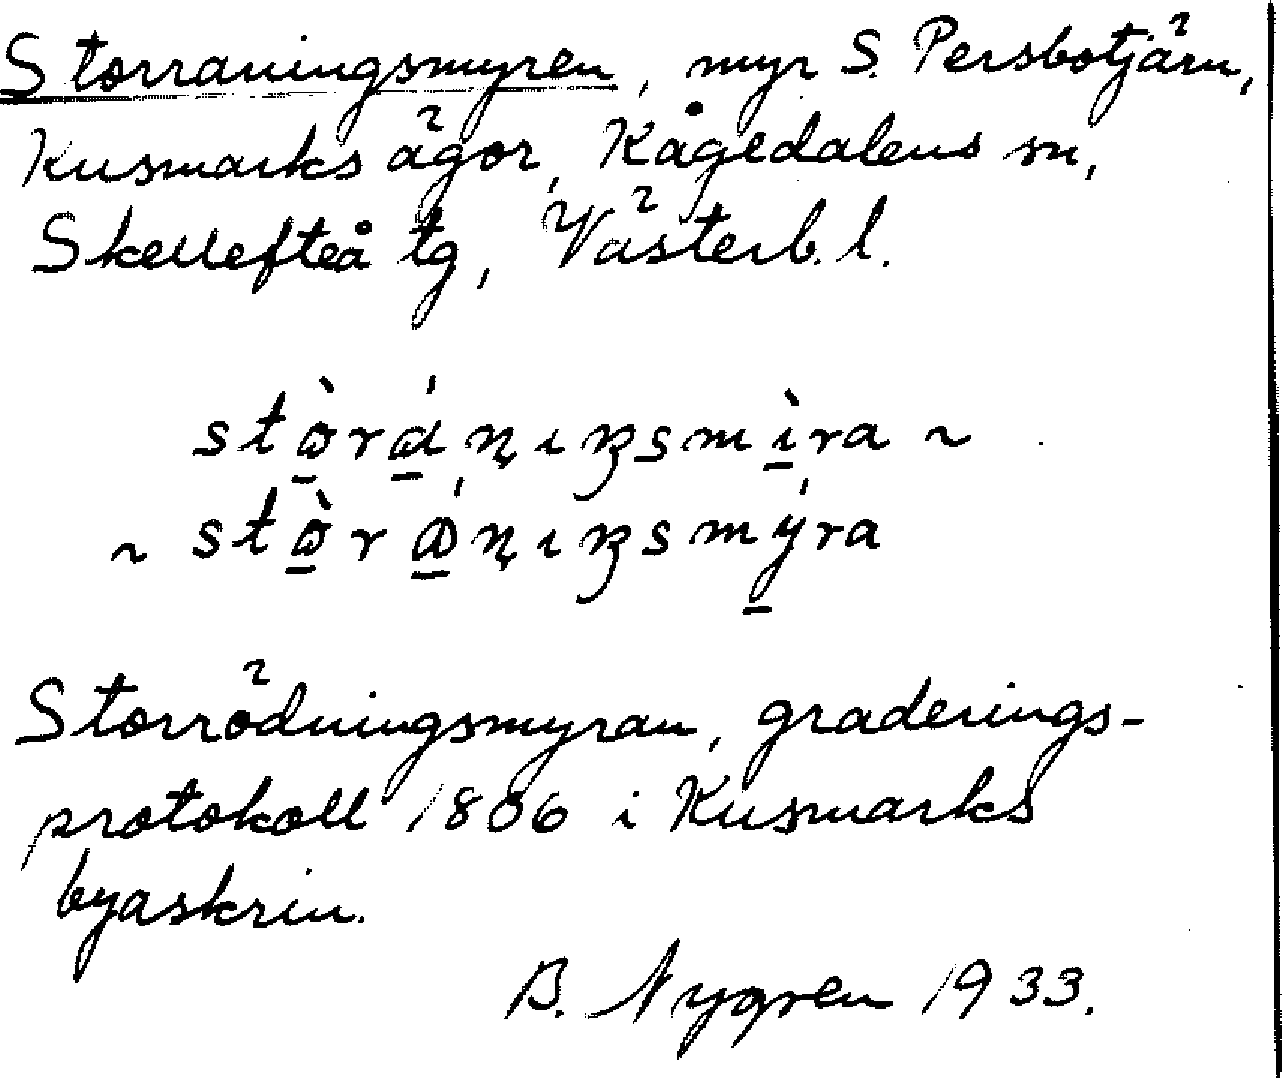 Storraningsmyren, myr S. Persbotjärn,
Kusmarks ägor, Kågedalens sn,
Skellefteå tg, Västerb. l.
Storrödningsmyran, graderings-
protokoll 1806 i Kusmarks
byaskrin.
B. Nygren 1933.